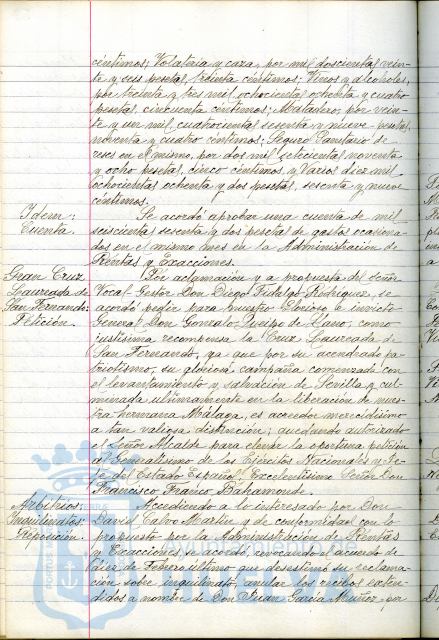 céntimos; Volatería y caza, por mil doscientas vein-
te y seis pesetas, treinta céntimos; Vinos y alcoholes,
por treinta y tres mil ochocientas ochenta y cuatro
pesetas, cincuenta céntimos; Matadero, por vein-
te y un mil cuatrocientas sesenta y nueve pesetas,
noventa y cuatro céntimos; Seguro Sanitario de
reses en el mismo, por dos mil setecientas noventa
y ocho pesetas, cinco céntimos y Varios diez mil
ochocientas ochenta y dos pesetas, sesenta y nueve
céntimos.
Idem:
Cuenta.
Se acordó aprobar una cuenta de mil
seiscientas sesenta y dos pesetas de gastos ocasiona-
dos en el mismo mes en la Administración de
Rentas y Exacciones.
Gran Cruz
Laureada de
San Fernando:
Petición.
Por aclamación y a propuesta del Señor
Vocal Gestor Don Diego Fidalgo Rodríguez, se
acordó pedir para nuestro glorioso e invicto
General Don Gonzalo Queipo de Llano, como
justísima recompensa la Cruz Laureada de
San Fernando, ya que por su acendrado pa-
triotismo, su gloriosa campaña comenzada con
el levantamiento y salvación de Sevilla y cul-
minada ultimamente en la liberación de nues-
tra hermana Málaga, es acreedor merecidísimo
a tan valiosa distinción; quedando autorizado
el Señor Alcalde para elevar la oportuna petición
al Generalísimo de los Ejércitos Nacionales y Je-
fe del Estado Español, Excelentísimo Señor Don
Francisco Franco Bahamonde.
Arbitrios:
Inquilinatos:
Reposición.
Accediendo a lo interesado por Don
David Calvo Martín y de conformidad con lo
propuesto por la Administración de Rentas
y Exacciones, se acordó, revocando el acuerdo de
diez de Febrero último que desestimó su reclama-
ción sobre inquilinato, anular los recibos exten-
didos a nombre de Don Juan García Muñoz, por